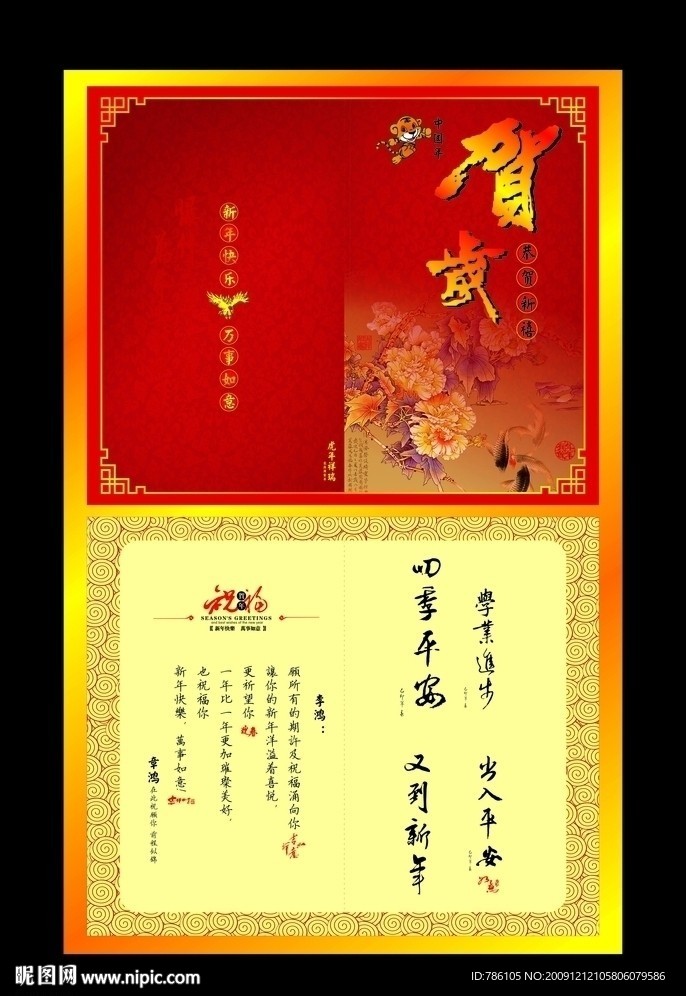 中国年
賀歲
恭贺新禧
新年快乐
万事如意
虎年祥瑞
祝福
賀年
SEASON'S GREETINGS
and best wishes of the new year
【新年快樂 萬事如意】
李鴻：
願所有的期許及祝福涌向你
讓你的新年洋溢着喜悦，
更祈望你
一年比一年更加璀璨美好，
也祝福你
新年快樂，萬事如意
章鴻 在此祝願你 前程似錦
學業進步
四季平安
出入平安
又到新年
昵图网 www.nipic.com
ID:786105 NO:20091212105806079586